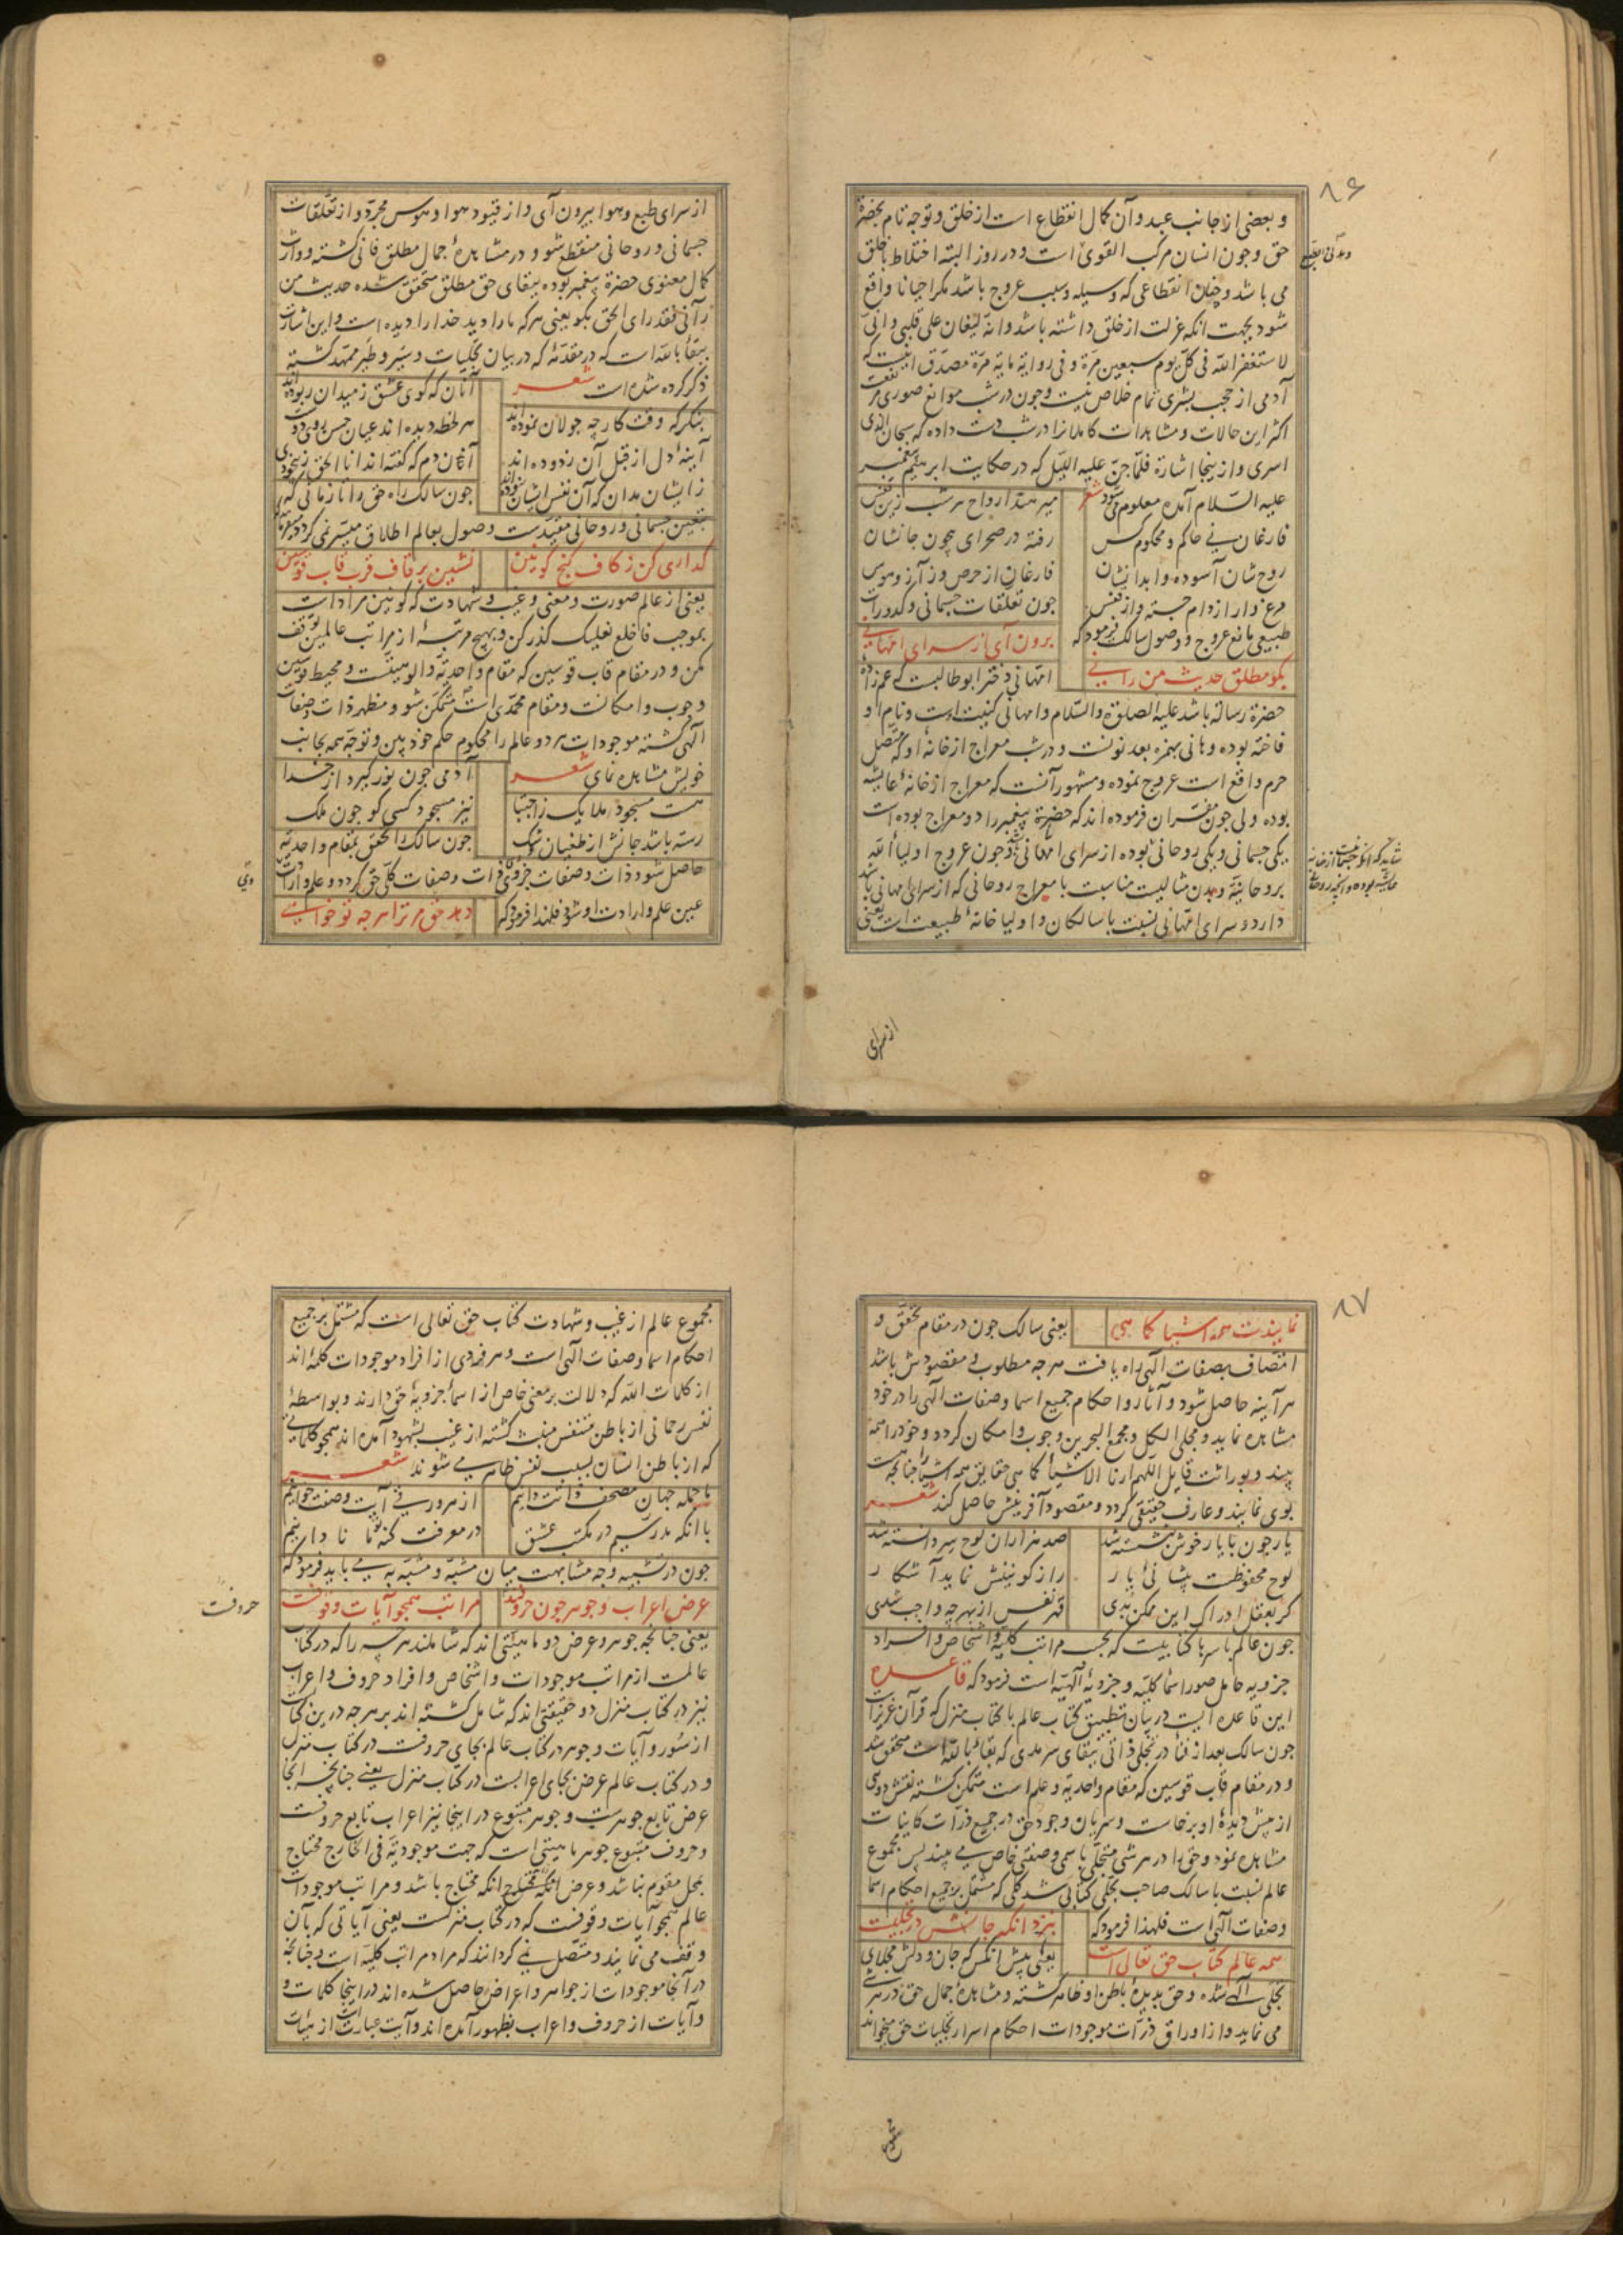 ۸۶
و بعضی از جانب عبد و آن کمال انقطاع است از خلق و توجه تام بحضرة
حق و چون انسان مرکب القوی است و در روز البته اختلاط با خلق
می باشد و چنان انقطاعی که وسیله و سبب عروج باشد مکر احیانا واقع
شود بجهت انکه عزلت از خلق داشته باشد و انه لیغان علی قلبی و انی
لاستغفر الله فی کل یوم سبعین مرة و فی روایة مایة مرة مصدق اینست که
آدمی از حجب بشری تمام خلاص نیست و چون در شب موانع صوری مرتفعست
اکثر این حالات و مشاهدات کاملانرا در شب دست داده که سبحان الذی
اسری و ازینجا اشارة فلما جن علیه اللیل که در حکایت ابرهیم پیغمبر
علیه السلام آمده معلوم می شود شعر
میرهند ارواح هر شب زین قفس
فارغان نی حاکم و محکوم کس
رفته در صحرای بیچون جانشان
روح شان آسوده و ابدانشان
فارغان از حرص و ز آز و هوس
مرغ وار از دام جسته و از قفس
چون تعلقات جسمانی و کدورات
طبیعی مانع عروج و وصول سالک فرمود که
برون آی از سرای امهانی
بکو مطلق حدیث من رآنی
امهانی دختر ابو طالبست که عم زاده
حضرة رسالة باشد علیه الصلوة والسلام و امهانی کنیت اوست و نام او
فاخته بوده و هانی بهمزه بعد نونست و در شب معراج از خانه او که متصل
حرم واقع است عروج نموده و مشهور آنست که معراج از خانه عایشه
بوده ولی چون مفسران فرموده اند که حضرة پیغمبر را دو معراج بوده است
یکی جسمانی و یکی روحانی بوده از سرای امهانی و چون عروج اولیاء الله
بروحانیة و بدن مثالیست مناسبت با معراج روحانی که از سرای امهانی باشد
دارد و سرای امهانی نسبت با سالکان و اولیا خانه طبیعت است یعنی
از سرای
از سرای طبع و هوا بیرون آی و از قیود هوا و هوس مجرد و از تعلقات
جسمانی و روحانی منقطع شو و در مشاهده جمال مطلق فانی کشته و وارث
کمال معنوی حضرة پیغمبر بوده ببقای حق مطلق متحقق شده حدیث من
رآنی فقد رای الحق بکو یعنی هر که مارا دید خدا را دیده است و این اشارت
ببقاء بالله است که در مقدمه که در بیان تجلیات و سیر و طیر ممهد کشته
ذکر کرده شده است شعر
آنان که کوی عشق ز میدان ربوده اند
بنکر که وقت کار چه جولان نموده اند
هر لحظه دیده اند عیان حسن روی دوست
آینه دل از قبل آن زدوده اند
آنان دم که کفته اند انا الحق ز بیخودی
زایشان مدان که آن نفس ایشان نبوده اند
چون سالک راه حق را تا زمانی که
بتعین جسمانی و روحانی مقیدست وصول بعالم اطلاق میسر نمی کردد میفرماید
کذاری کن ز کاف کنج کونین
نشین بر قاف قرب قاب قوسین
یعنی از عالم صورت و معنی و غیب و شهادت که کونین مراد است
بموجب فاخلع نعلیک کذر کن و بهیچ مرتبه از مراتب عالمین توقف
مکن و در مقام قاب قوسین که مقام واحدیة و الوهیتست و محیط قوسین
وجوب و امکانست و مقام محمدی است متمکن شو و مظهر ذات و صفات
الهی کشته موجودات هر دو عالم را محکوم حکم خود بین و توجه همه بجانب
خویش مشاهده نمای شعر
آدمی چون نور کیرد از خدا
هست مسجود ملایک ز اجتبا
نیز مسجود کسی کو چون ملک
رسته باشد جانش از طغیان و شک
چون سالک را تحقق بمقام واحدیة
حاصل شود ذات و صفات جزوی ذات و صفات کلی حق کردد و علم و ارادت
عین علم و ارادت او شود فلهذا فرمود که
دهد حق مر ترا هر چه تو خواهی
وی
۸۷
نمایندت همه اشیا کما هی
یعنی سالک چون در مقام تحقق و
اتصاف بصفات الهی راه یافت هر چه مطلوب و مقصودش باشد
هر آینه حاصل شود و آثار و احکام جمیع اسما و صفات الهی را در خود
مشاهده نماید و مجلی الکل و مجمع البحرین وجوب و امکان کردد و خود را همه
بیند و بوراثت قایل اللهم ارنا الاشیاء کما هی حقایق همه اشیا را چنانچه هست
بوی نمایند و عارف حقیقی کردد و مقصود آفرینش حاصل کند شعر
یار چون با یار خوش بنشسته شد
صد هزاران لوح سر دانسته شد
لوح محفوظست پیشانی یار
راز کونینش نماید آشکار
کر بعقل ادراک این ممکن بدی
قهر نفس از بهر چه واجب شدی
چون عالم باسرها کتابیست که بحسب مراتب کلیه و اشخاص و افراد
جزویه حامل صور اسماء کلیه و جزویه الهیه است فرمود که قاعده
این قاعده ایست در بیان تطبیق کتاب عالم با کتاب منزل که قرآن عزیز است
چون سالک بعد از فنا در تجلی ذاتی ببقای سرمدی که بقاء بالله است متحقق شد
و در مقام قاب قوسین که مقام واحدیة و علم است متمکن کشته نقش دویی
از پیش دیده او برخاست و سریان وجود حق در جمیع ذرات کاینات
مشاهده نمود و حق را در هر شی متجلی باسمی و صفتی خاص می بیند پس مجموع
عالم نسبت با سالک صاحب تجلی کتابی شد کلی که مشتمل بر جمیع احکام اسما
و صفات الهی است فلهذا فرمود که
بنزد انکه جانش در تجلیست
همه عالم کتاب حق تعالی است
یعنی پیش انکس که جان و دلش مجلای
تجلی الهی شده و حق بدیده باطن او ظاهر کشته و مشاهده جمال حق در هر شی
می نماید و از اوراق ذرات موجودات احکام اسرار تجلیات حق میخواند
مجموع
مجموع عالم از غیب و شهادت کتاب حق تعالی است که مشتمل بر جمیع
احکام اسما و صفات الهی است و هر فردی از افراد موجودات کلمه اند
از کلمات الله که دلالت بر معنی خاص از اسماء جزویه حق دارند و بواسطه
نفس رحمانی از باطن متنفس منبث کشته از غیب بشهود آمده اند همچو کلماتی
که از باطن انسان بسبب نفس ظاهر می شوند شعر
با جمله جهان مصحف ذاتت دانیم
از هر ورقی آیت وصفت خوانیم
با انکه مدرسیم در مکتب عشق
در معرفت کنه تو نادانیم
چون در تشبیه وجه مشابهت میان مشبه و مشبه به می باید فرمود که
عرض اعراب و جوهر چون حروفند
مراتب همچو آیات وقوفست
حروفست
یعنی چنانچه جوهر و عرض دو ماهیتی اند که شاملند هرچه را که در کتاب
عالمست از مراتب موجودات و اشخاص و افراد حروف و اعراب
نیز در کتاب منزل دو حقیقتی اند که شامل کشته اند بر هر چه درین کتاب
از سور و آیات و جوهر در کتاب عالم بجای حروفست در کتاب منزل
و در کتاب عالم عرض بجای اعرابست در کتاب منزل یعنی چنانچه انجا
عرض تابع جوهرست و جوهر متبوع در اینجا نیز اعراب تابع حروفست
و حروف متبوع جوهر ماهیتی است که جهت موجودیة فی الخارج محتاج
بمحل مقوم نباشد و عرض انکه محتاج باشد و مراتب موجودات
عالم همچو آیات وقوفست که در کتاب منزلست یعنی آیاتی که بآن
وقف می نمایند و متصل نمی کردانند که مراد مراتب کلیه است و چنانچه
در آنجا موجودات از جواهر و اعراض حاصل شده اند در اینجا کلمات و
و آیات از حروف و اعراب بظهور آمده اند و آیت عبارت از هیات